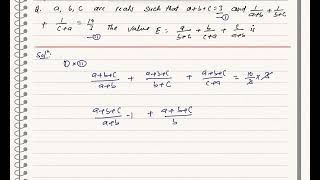 Q. a, b, c are reals such that a+b+c=3 —① and 1/(a+b) + 1/(b+c)
+ 1/(c+a) = 10/3 —② The value E = a/(b+c) + b/(c+a) + c/(a+b) is
Sol^n:
① × ②
(a+b+c)/(a+b) + (a+b+c)/(b+c) + (a+b+c)/(c+a) = 10/3 × 3
(a+b+c)/(a+b) -1 + (a+b+c)/b